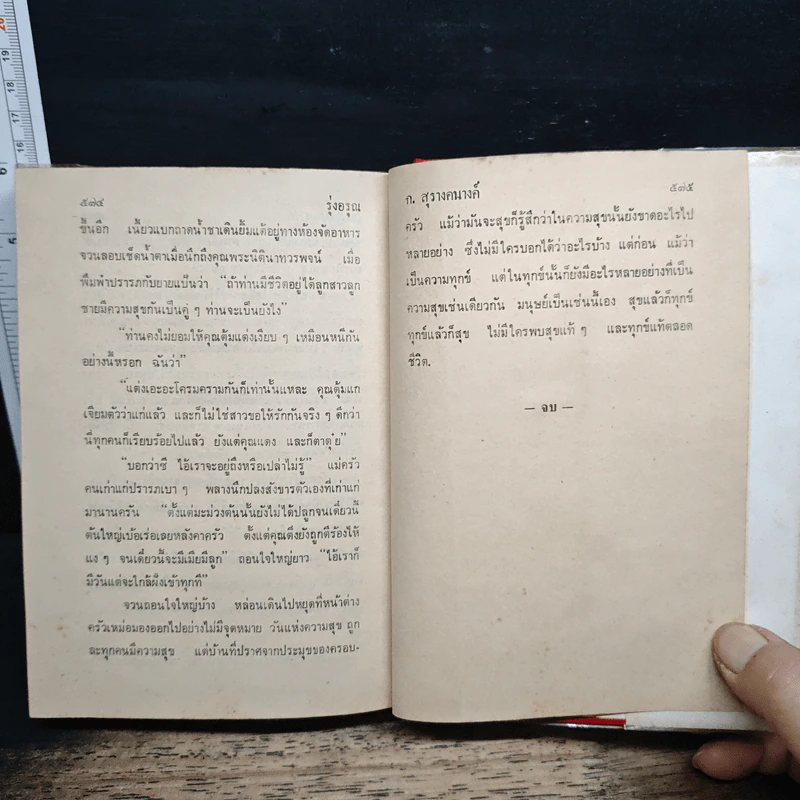 ๕๗๔
รุ่งอรุณ
ขึ้นอีก เนี้ยวแบกถาดน้ำชาเดินยิ้มแต้อยู่ทางห้องจัดอาหาร
จวนลอบเช็ดน้ำตาเมื่อนึกถึงคุณพระนิตินาทวรพจน์ เมื่อ
พิมพำปรารภกับยายแป้นว่า “ถ้าท่านมีชีวิตอยู่ได้ลูกสาวลูก
ชายมีความสุขกันเป็นคู่ ๆ ท่านจะเป็นยังไง”
“ท่านคงไม่ยอมให้คุณตุ้มแต่งเงียบ ๆ เหมือนหนีกัน
อย่างนี้หรอก ฉันว่า”
“แต่งเอะอะโครมครามกันก็เท่านั้นแหละ คุณตุ้มแก
เจียมตัวว่าแก่แล้ว และก็ไม่ใช่สาวขอให้รักกันจริง ๆ ดีกว่า
นี่ทุกคนก็เรียบร้อยไปแล้ว ยังแต่คุณแดง และก็ตาตุ๋ย”
“บอกว่าซี ไอ้เราจะอยู่ถึงหรือเปล่าไม่รู้” แม่ครัว
คนเก่าแก่ปรารภเบา ๆ พลางนึกปลงสังขารตัวเองที่เก่าแก่
มานานครัน “ตั้งแต่มะม่วงต้นนั้นยังไม่ได้ปลูกจนเดี๋ยวนี้
ต้นใหญ่เบ้อเร่อเลยหลังคาครัว ตั้งแต่คุณตึ๋งยังถูกตีร้องไห้
แง ๆ จนเดี๋ยวนี้จะมีเมียมีลูก” ถอนใจใหญ่ยาว “ไอ้เราก็
มีวันแต่จะใกล้ผีงเข้าทุกที”
จวนถอนใจใหญ่บ้าง หล่อนเดินไปหยุดที่หน้าต่าง
ครัวเหม่อมองออกไปอย่างไม่มีจุดหมาย วันแห่งความสุข ถูก
ละทุกคนมีความสุข แต่บ้านที่ปราศจากประมุขของครอบ-
ก. สุรางคนางค์
๕๗๕
ครัว แม้ว่ามันจะสุขก็รู้สึกว่าในความสุขนั้นยังขาดอะไรไป
หลายอย่าง ซึ่งไม่มีใครบอกได้ว่าอะไรบ้าง แต่ก่อน แม้ว่า
เป็นความทุกข์ แต่ในทุกข์นั้นก็ยังมีอะไรหลายอย่างที่เป็น
ความสุขเช่นเดียวกัน มนุษย์เป็นเช่นนี้เอง สุขแล้วก็ทุกข์
ทุกข์แล้วก็สุข ไม่มีใครพบสุขแท้ ๆ และทุกข์แท้ตลอด
ชีวิต.
— จบ —
20
19
18
17
16
15
14
13
12
6
5